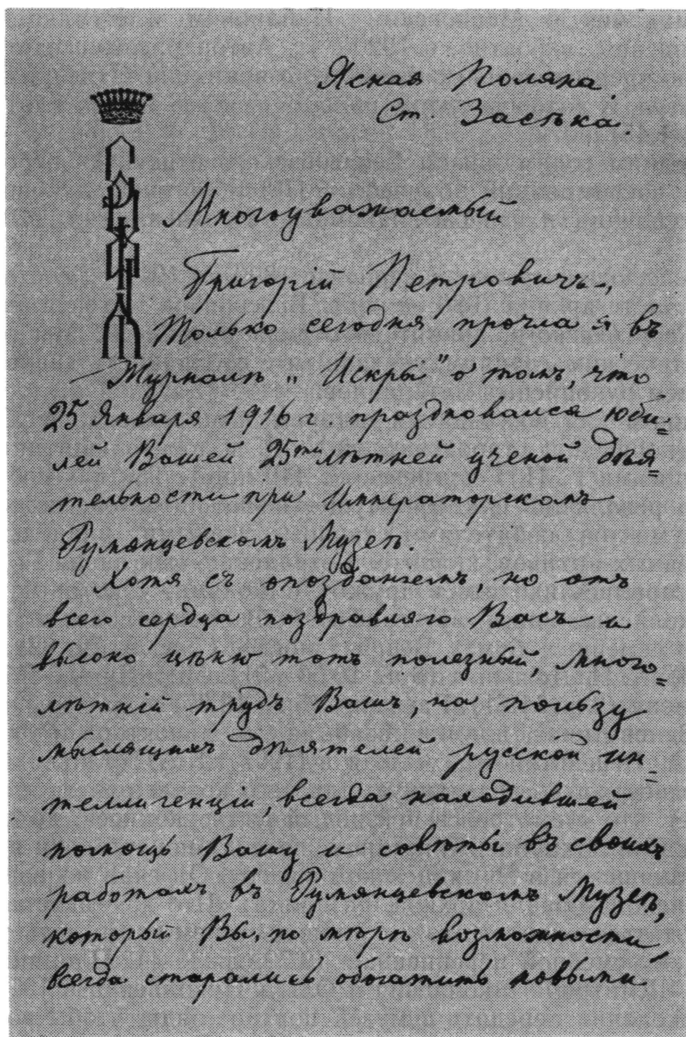 Ясная Поляна.
Ст. Засѣка.
Многоуважаемый
Григорій Петровичъ,
Только сегодня прочла я въ
Журналѣ „Искры" о томъ, что
25 Января 1916 г. праздновался юби=
лей Вашей 25ти лѣтней ученой дѣя=
тельности при Императорскомъ
Румянцевскомъ Музеѣ.
Хотя съ опозданіемъ, но отъ
всего сердца поздравляю Васъ и
высоко цѣню тотъ полезный, много=
лѣтній трудъ Вашъ, на пользу
мыслящихъ дѣятелей русской ин=
теллигенціи, всегда находившей
помощь Вашу и совѣты въ своихъ
работахъ въ Румянцевскомъ Музеѣ,
который Вы, по мѣрѣ возможности,
всегда старались обогатить новыми